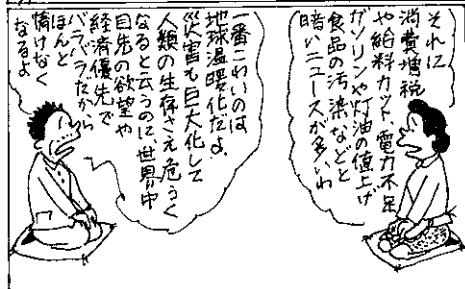 それに
消費増税
や給料カット、電力不足
ガソリンや灯油の値上げ
食品の汚染などと
暗いニュースが多いわ
一番こわいのは
地球温暖化だよ、
災害も巨大化して
人類の生存さえ危うく
なると云うのに世界中
目先の欲望や
経済優先で
バラバラだから
ほんと
情けなく
なるよ